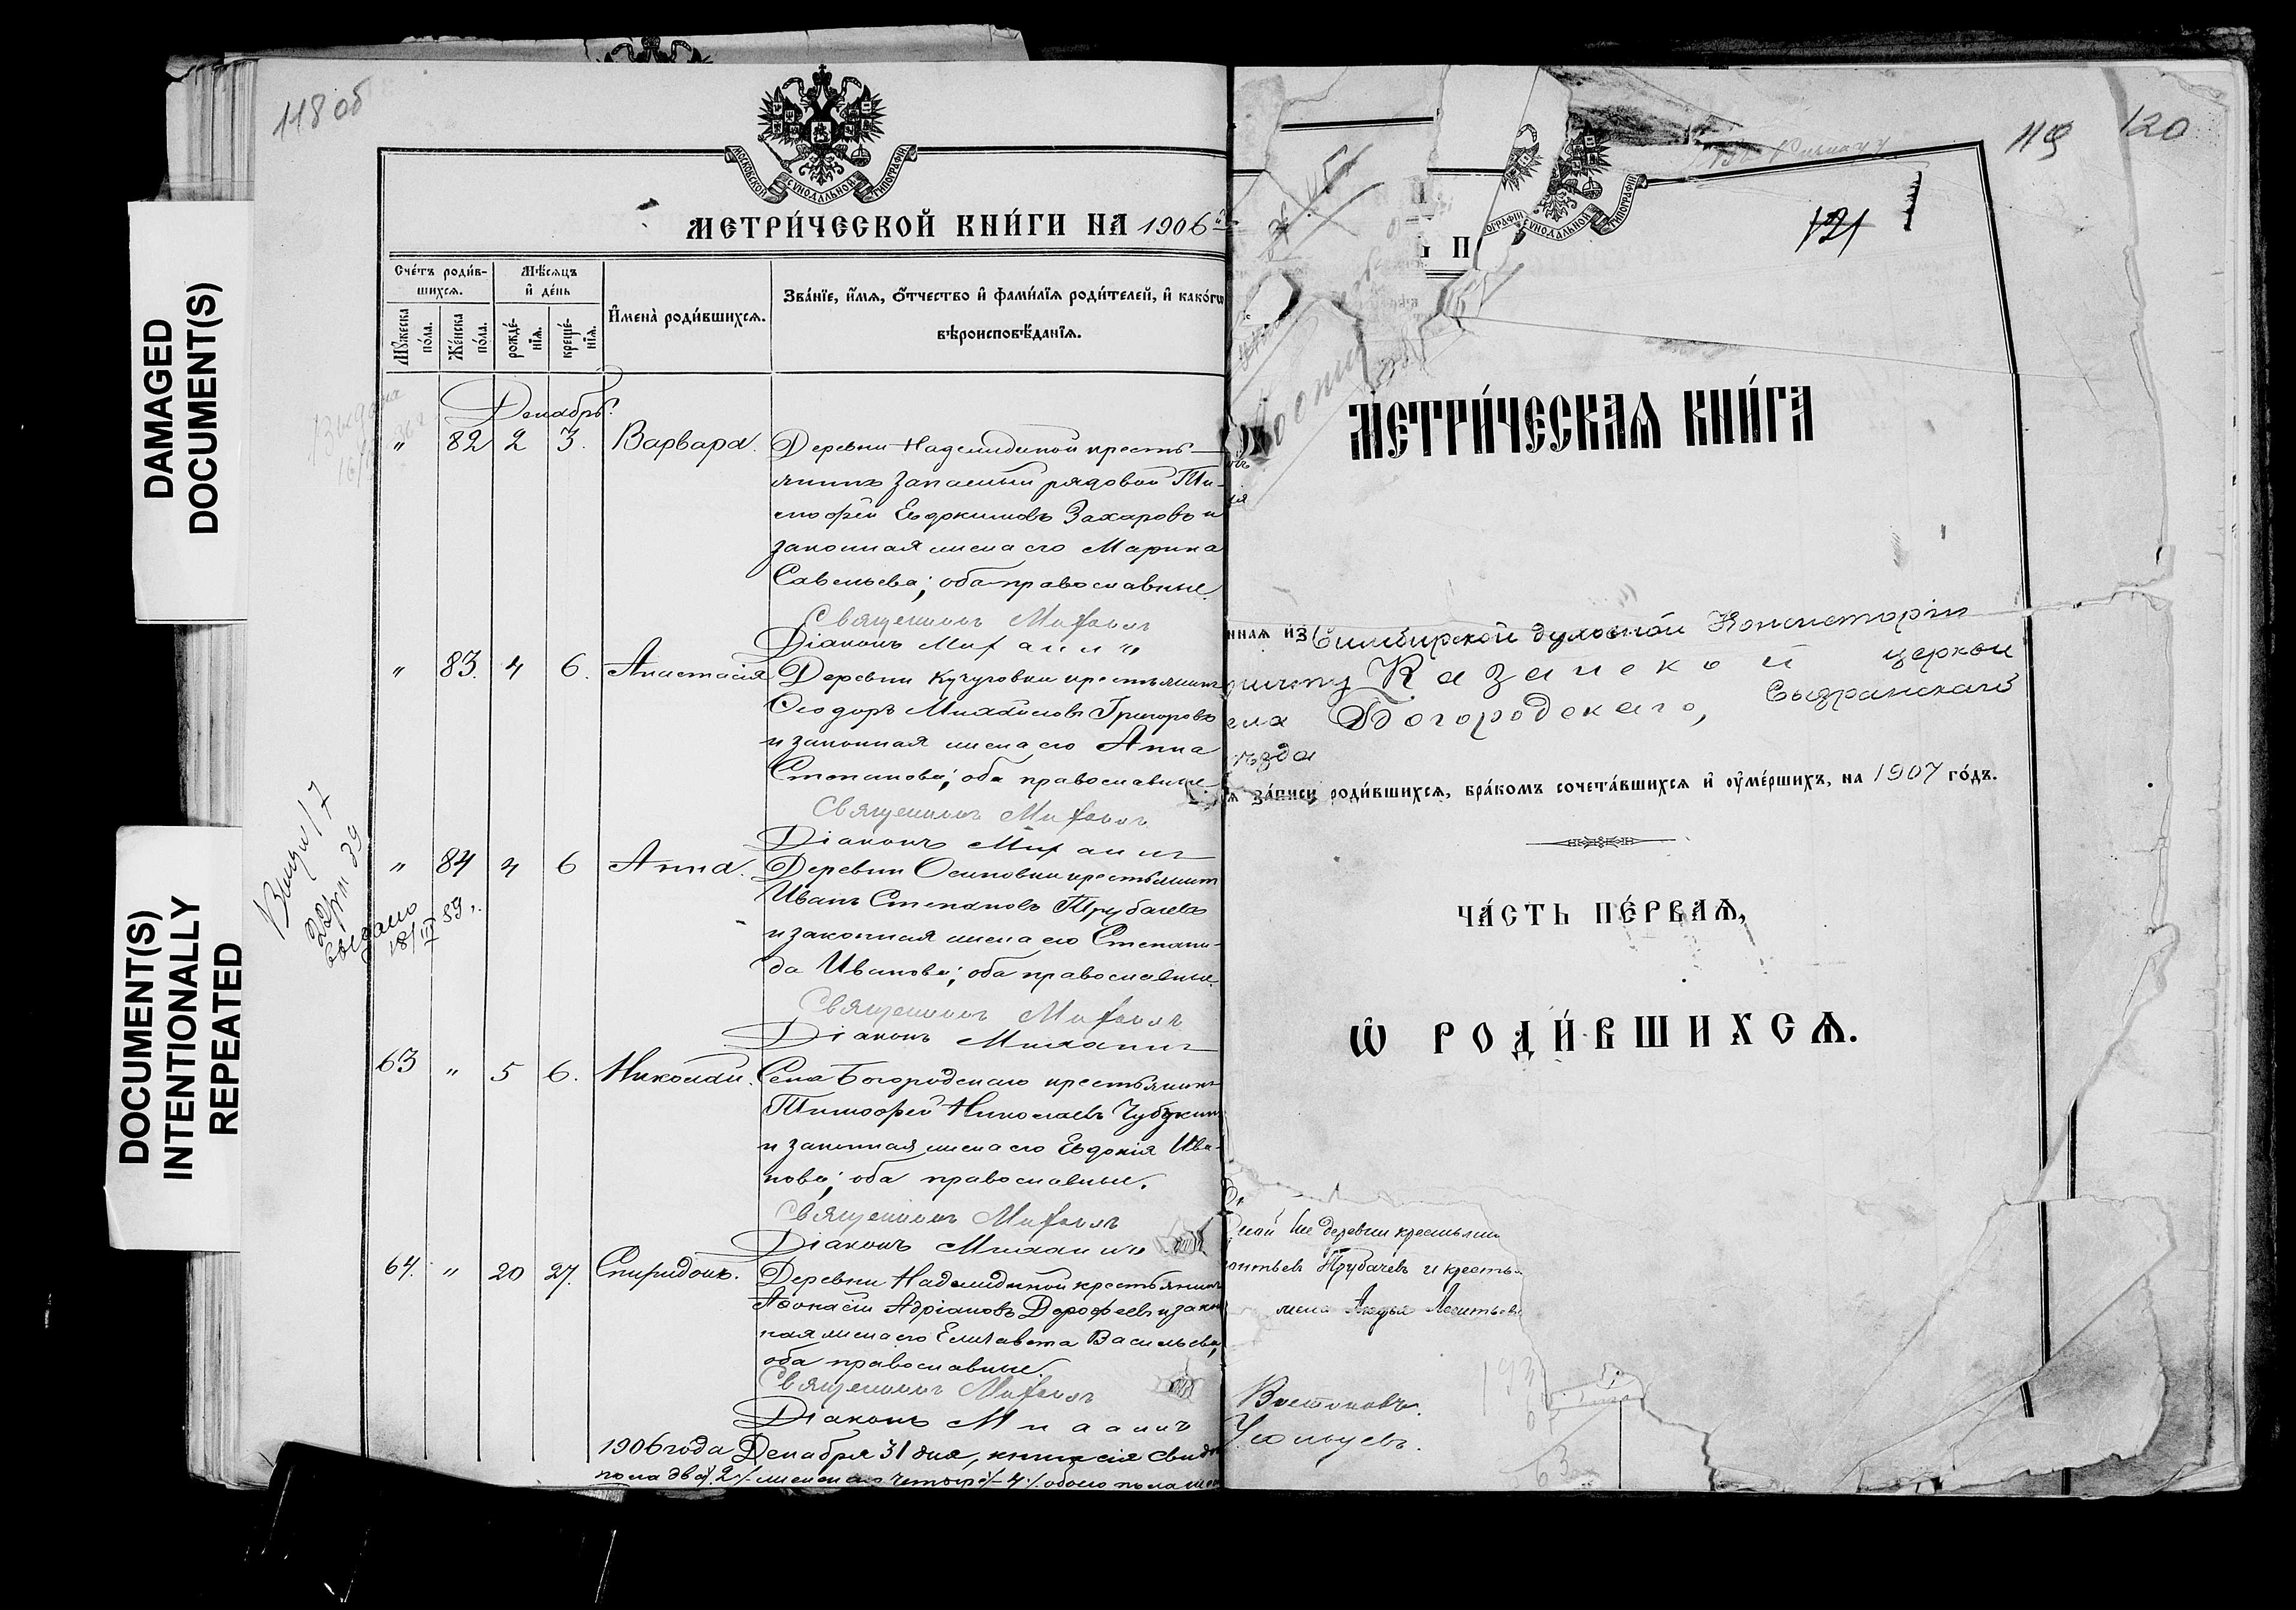 DAMAGED
DOCUMENT(S)
DOCUMENT(S)
INTENTIONALLY
REPEATED
118 об
МОСКОВСКОЙ СѴНОДАЛЬНОЙ ТИПОГРАФІИ
МЕТРИ́ЧЕСКОЙ КНИ́ГИ НА 1906
Сче́тъ роди́в-
шихсѧ.
Мѣ́сѧцъ
и҆ де́нь
Мꙋ́жеска
по́ла.
Же́нска
по́ла.
рожде́-
нїѧ.
креще́-
нїѧ.
И҆мена̀ роди́вшихсѧ.
Зва́нїе, и҆́мѧ, ѻ҆́тчество и҆ фами́лїѧ роди́телей, и҆ како́гѡ
вѣроисповѣ́данїѧ.
Декабрь.
„ 82 2 3. Варвара. Деревни Надеждиной кресть-
янинъ запасный рядовой Ти-
мофей Евдокимовъ Захаровъ и
законная жена его Марина
Савельева; оба православные.
Священникъ Михаилъ
Діаконъ Михаилъ
„ 83. 4 6. Анастасія Деревни Кучуговки крестьянинъ
Ѳеодоръ Михайловъ Григоровъ
и законная жена его Анна
Степанова; оба православные
Священникъ Михаилъ
Діаконъ Михаилъ
„ 84 4 6 Анна. Деревни Осиповки крестьянинъ
Иванъ Степановъ Трубачевъ
и законная жена его Степани-
да Иванова; оба православные.
Священникъ Михаилъ
Діаконъ Михаилъ
выдано
18/III 39.
63 „ 5 6. Николай. Села Богородскаго крестьянинъ
Тимофей Николаевъ Чубукин
и законная жена его Евдокія Ива-
нова; оба православные.
Священникъ Михаилъ
Діаконъ Михаилъ
64. „ 20 27. Спиридонъ. Деревни Надеждиной крестьянинъ
Аѳонасій Адріановъ Дорофеевъ и закон
ная жена его Елизавета Васильева,
оба православные.
Священникъ Михаилъ
Діаконъ Михаилъ
1906 года Декабря 31 дня, книга сія свид
пола два /.2./ женскаго четыре /.4./ обоего пола
119 120
121
СѴНОДАЛЬНОЙ ТИПОГРАФІИ
МЕТРИ́ЧЕСКАѦ КНИ́ГА
ннаѧ и҆з Симбирской духовной Консисторіи
причту Казанской церкви
села Богородскаго, Сызранскаго
уѣзда
ѧ за́писи роди́вшихсѧ, бра́комъ сочета́вшихсѧ и҆ ᲂу҆ме́ршихъ, на 1907 го́дъ.
ЧА́СТЬ ПЕ́РВАѦ,
Ѡ҆ РОДИ́ВШИХСѦ.
ной же деревни крестьянин
онтьевъ Трубачевъ и кресть-
жена Леонтьева
Востоковъ.
193
63